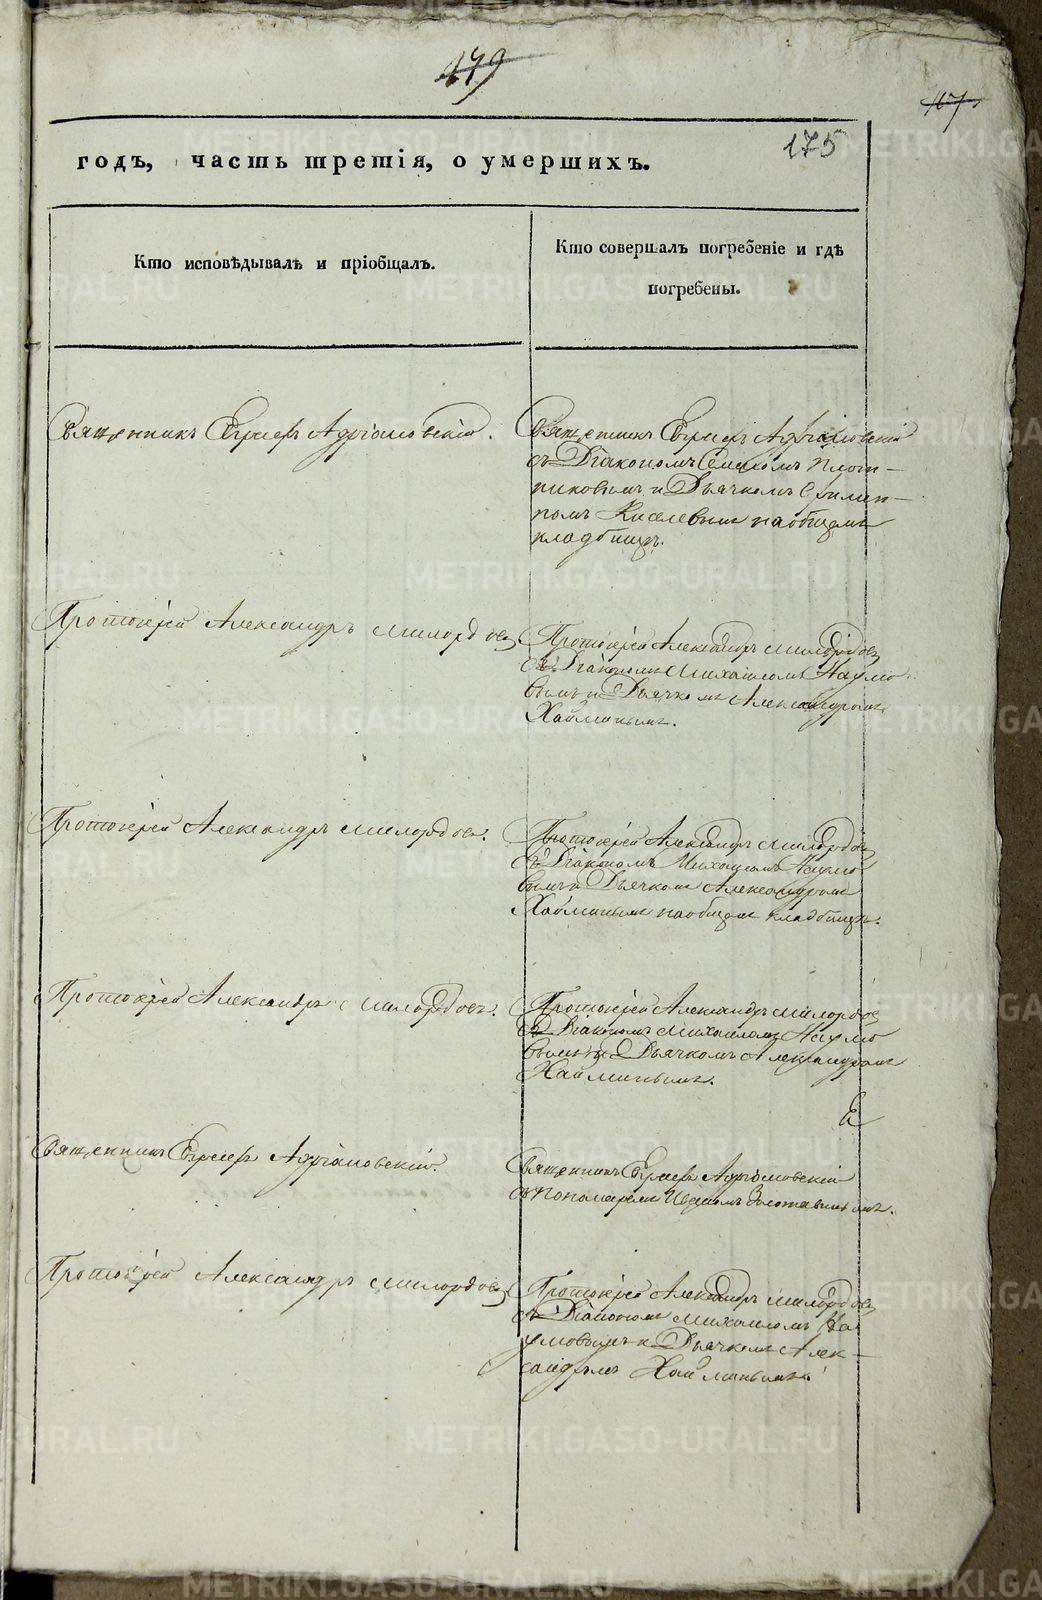 179
175
годъ, часть третія, о умершихъ.
Кто исповѣдывалъ и пріобщалъ.
Кто совершалъ погребеніе и гдѣ
погребены.
Священникъ Адріановскій.
Священникъ Адріановскій
съ Діакономъ Плот-
никовымъ и Дьячкомъ
Киселевымъ на общемъ
кладбищѣ.
Протоіерей Александръ Милордовъ
Протоіерей Александръ Милордовъ
съ Діакономъ Михаиломъ Наумо
вымъ и Дьячкомъ Александромъ
Хайминымъ.
Протоіерей Александръ Милордовъ.
Протоіерей Александръ Милордовъ
съ Діакономъ Михаиломъ Наумо
вымъ и Дьячкомъ Александромъ
Хайминымъ на общемъ кладбищѣ.
Протоіерей Александръ Милордовъ.
Протоіерей Александръ Милордовъ
съ Діакономъ Михаиломъ Наумо
вымъ и Дьячкомъ Александромъ
Хайминымъ.
Священникъ Адріановскій.
Священникъ Адріановскій
съ Пономаремъ Иваномъ
Протоіерей Александръ Милордовъ
Протоіерей Александръ Милордовъ
съ Діакономъ Михаиломъ На
умовымъ и Дьячкомъ Алек-
сандромъ Хайминымъ.
METRIKI.GASO-URAL.RU